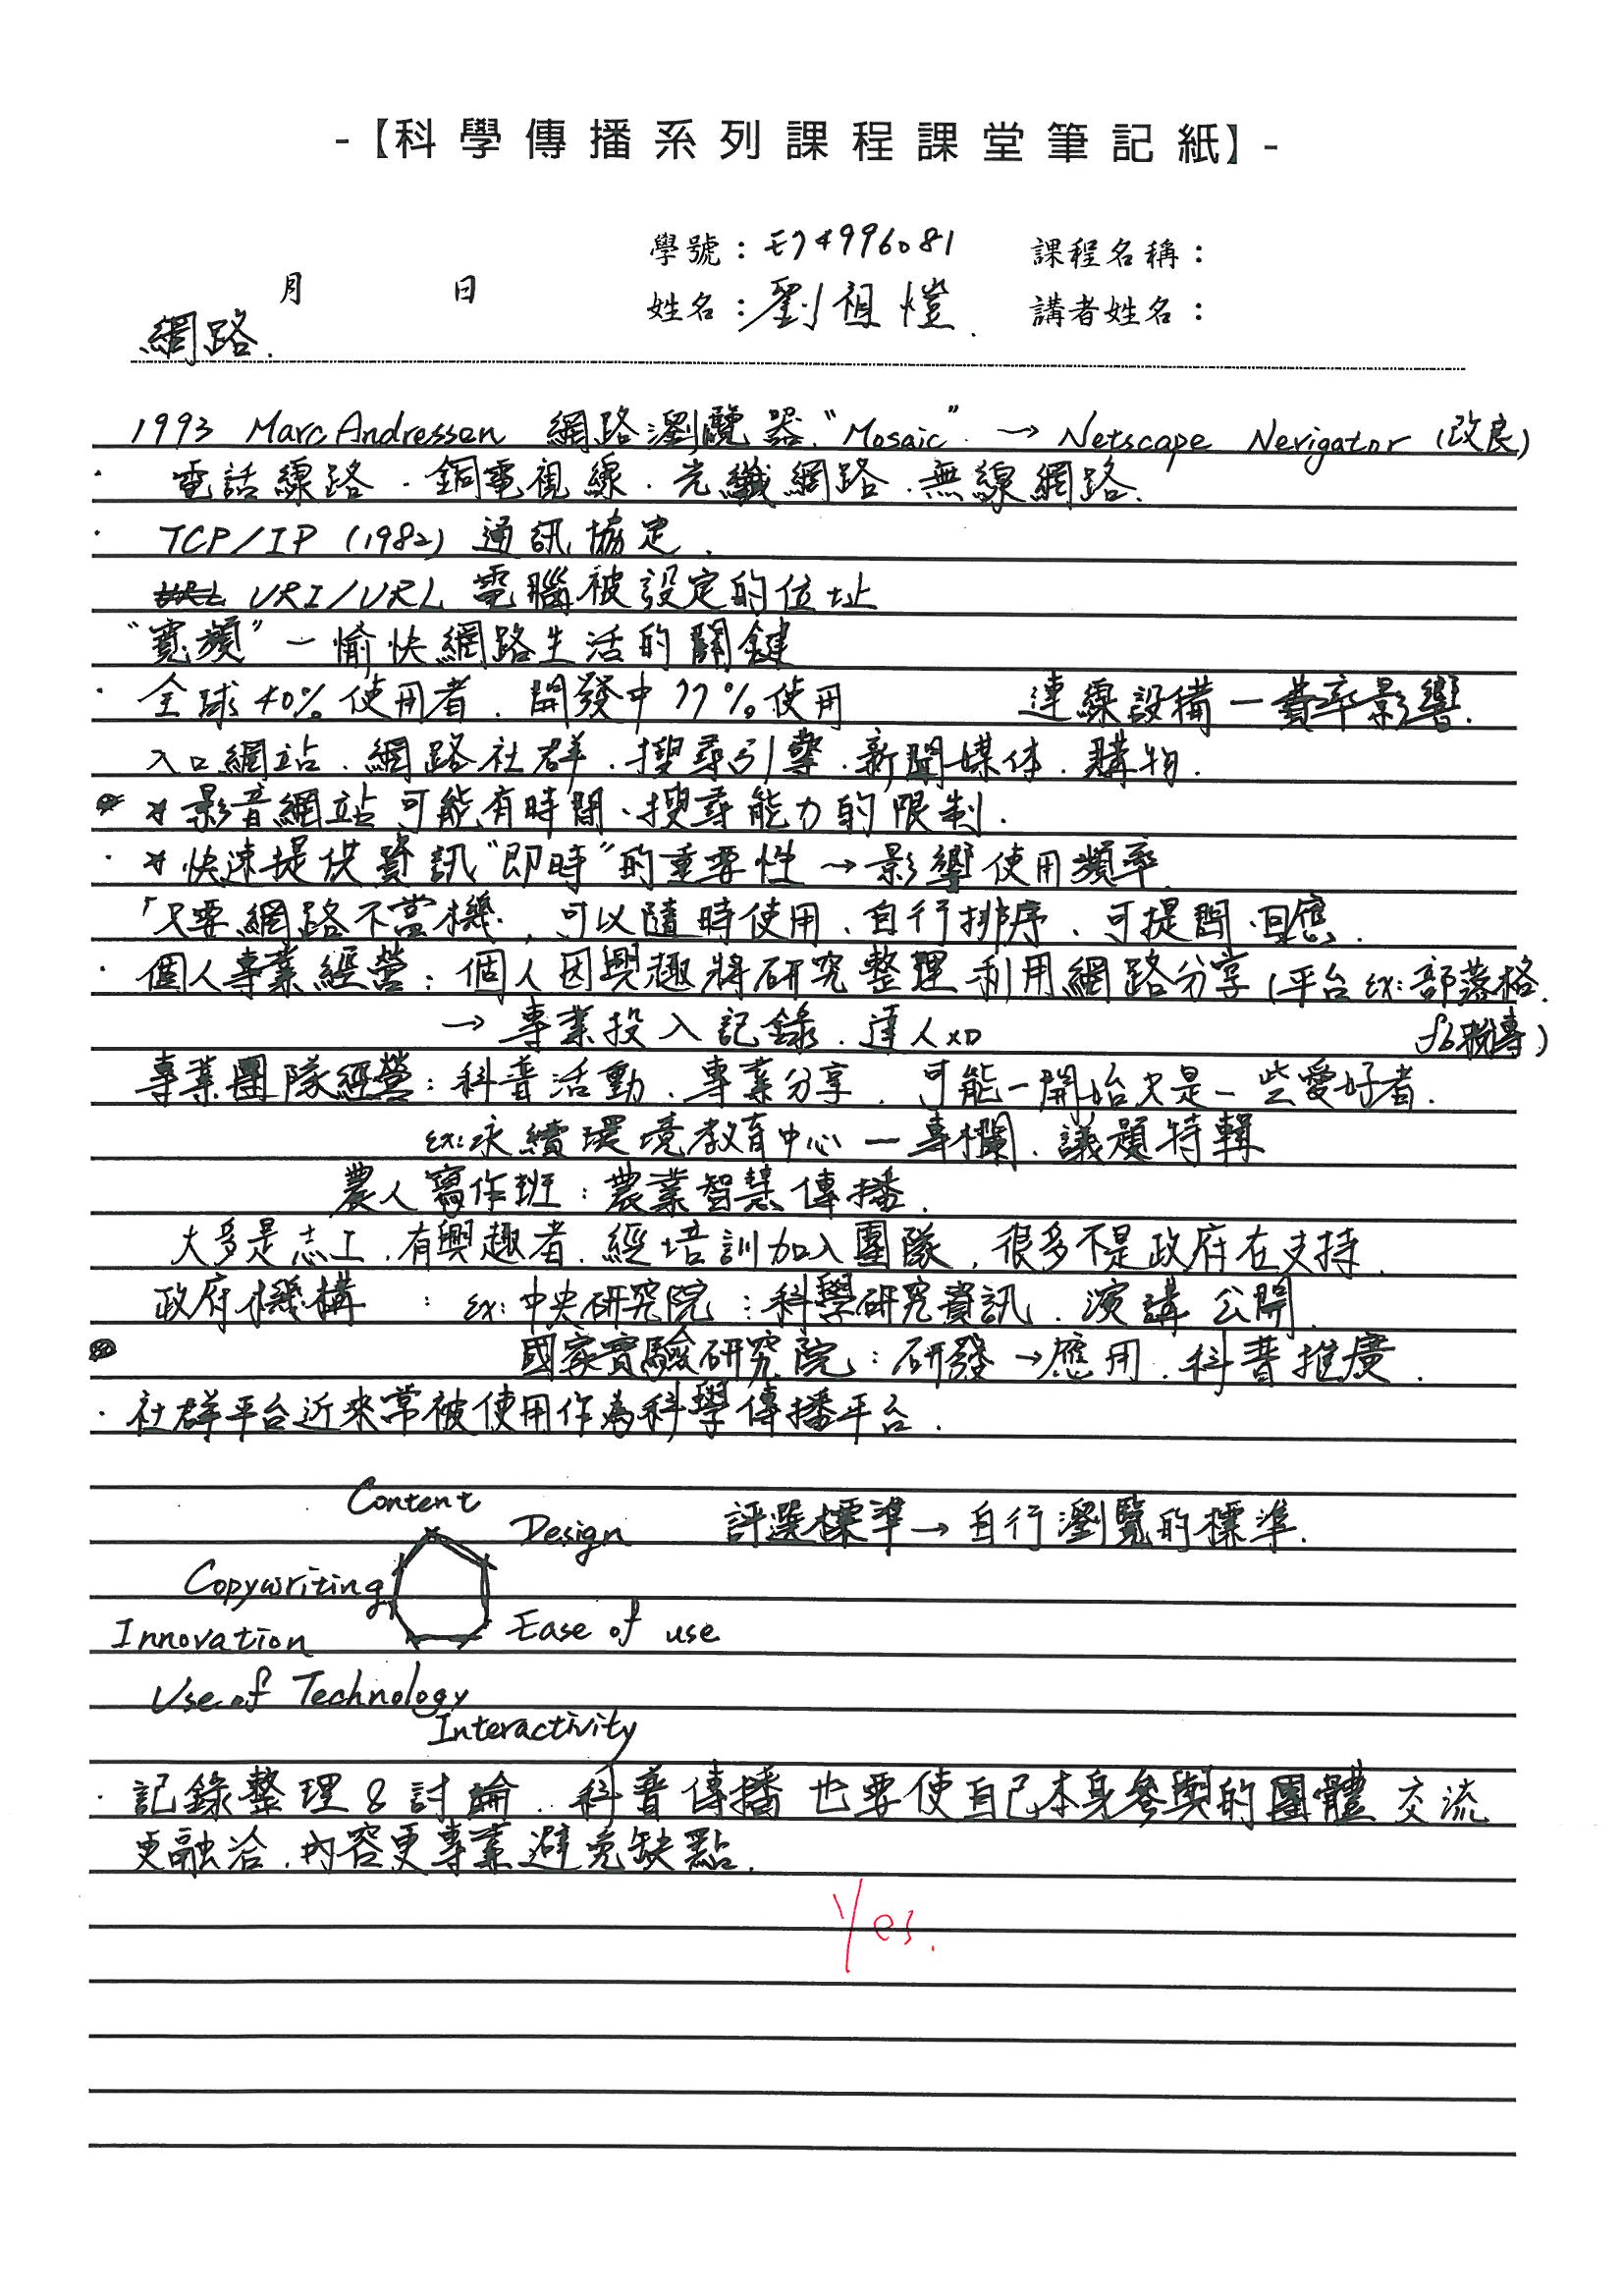 -【科學傳播系列課程課堂筆記紙】-
學號：E74996081 課程名稱：
月 日 姓名：劉祖愷. 講者姓名：
網路.
1993 Marc Andressen 網路瀏覽器."Mosaic" → Netscape Nevigator (改良)
· 電話線路．銅電視線．光纖網路．無線網路.
· TCP/IP (1982) 通訊協定.
URI/URL 電腦被設定的位址
"寬頻" — 愉快網路生活的關鍵
· 全球40%使用者．開發中77%使用 連線設備 — 費率影響.
入口網站．網路社群．搜尋引擎．新聞媒体．購物.
* 影音網站可能有時間、搜尋能力的限制.
· * 快速提供資訊"即時"的重要性 → 影響使用頻率.
「只要網路不當機，可以隨時使用、自行排序、可提問、回應.
· 個人專業經營：個人因興趣將研究整理利用網路分享 (平台 ex: 部落格.
→ 專業投入記錄．達人XD fb 專)
專業團隊經營：科普活動、專業分享．可能一開始只是一些愛好者.
ex: 永續環境教育中心 — 專欄、議題特輯
農人寫作班：農業智慧傳播.
大多是志工．有興趣者．經培訓加入團隊，很多不是政府在支持.
政府機構：ex: 中央研究院：科學研究資訊．演講 公開.
國家實驗研究院：研發→應用．科普推廣.
· 社群平台近來常被使用作為科學傳播平台.
Content
Design 評選標準 → 自行瀏覽的標準.
Copywriting
Innovation Ease of use
Use of Technology
Interactivity
· 記錄整理 & 討論．科普傳播也要使自己本身參與的團體 交流
更融洽．內容更專業避免缺點.
Yes.